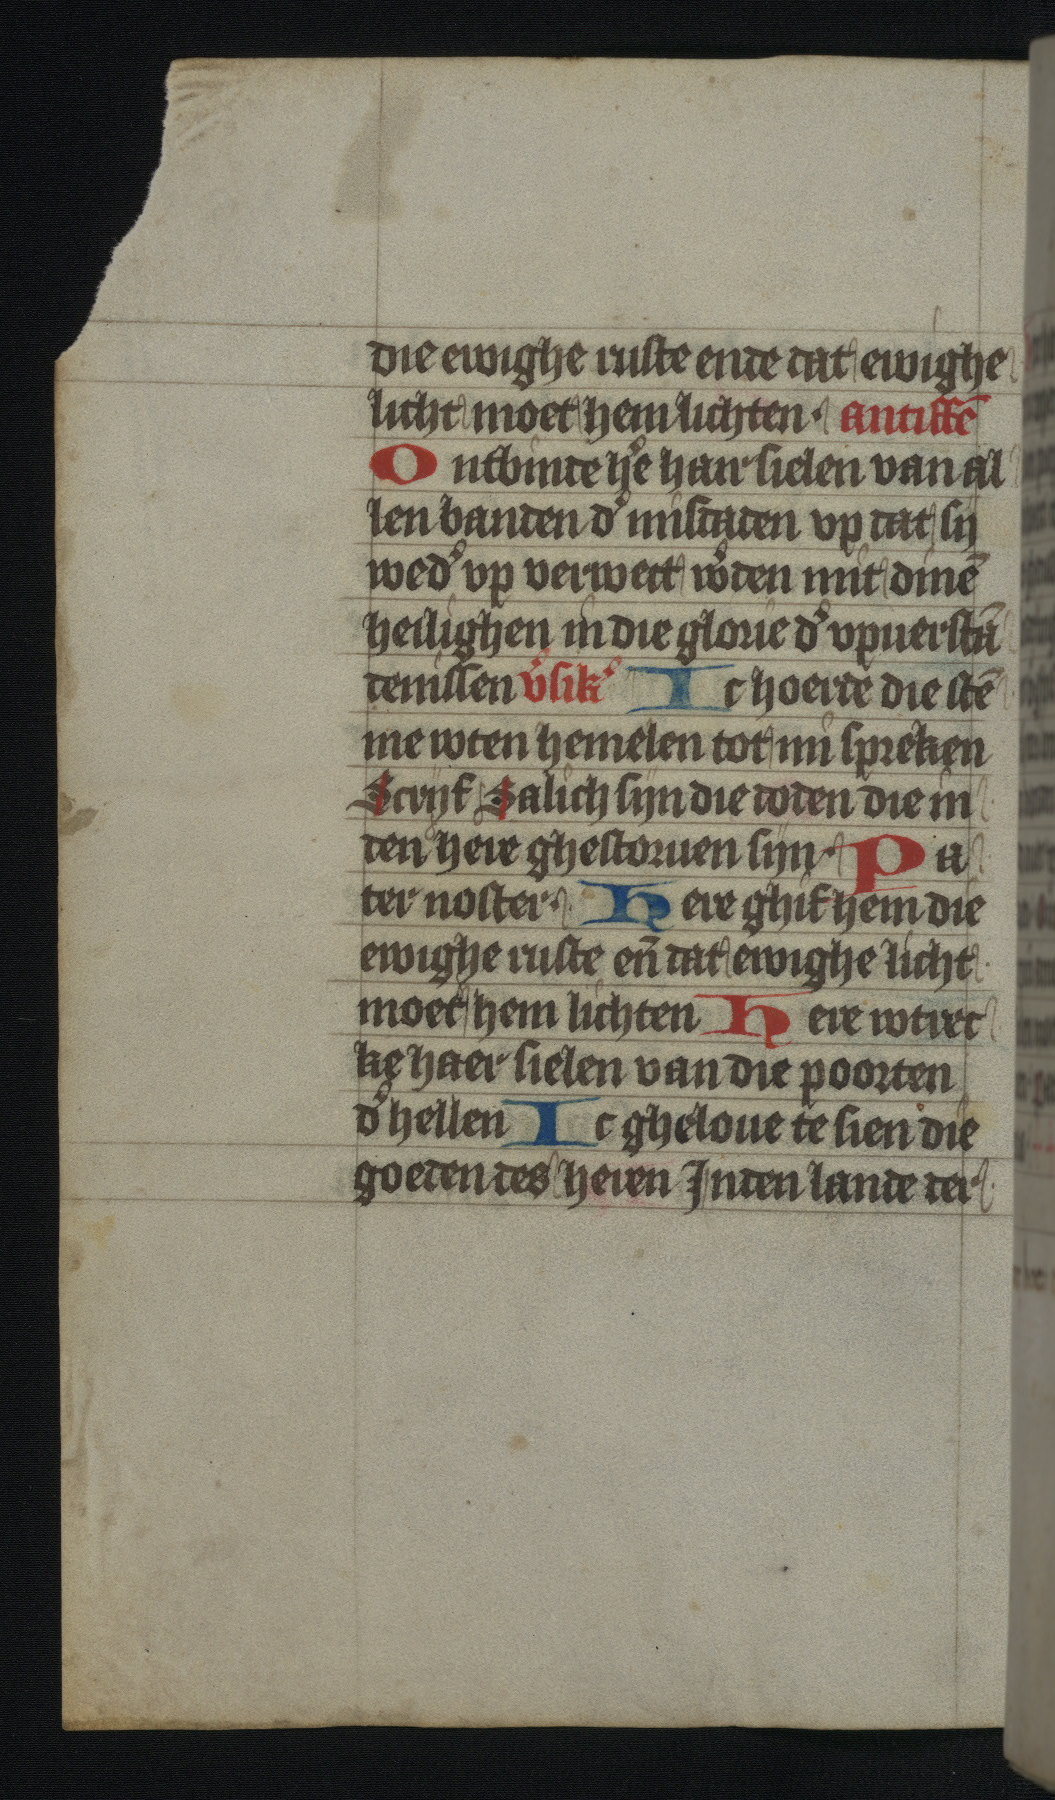 die ewighe ruste ende dat ewighe
licht moet hem lichten · antiffē
Ontbinde hʼe haer sielen van al
len banden dʼ misdaden vp dat sij
wedʼ vp verwect wʼden mit dinē
heilighen in die glorie dʼ vpuerstā
denissen vʼsikʼ Ic hoerde die stē
me wten hemelen tot mi spreken
Scrijf Salich sijn die doden die in
den here ghestoruen sijn · Pa
ter noster · Here ghif hem die
ewighe ruste eñ dat ewighe licht
moet hem lichten Here wtrec
ke haer sielen van die poorten
dʼ hellen Ic gheloue te sien die
goeden des heren Jnden lande der